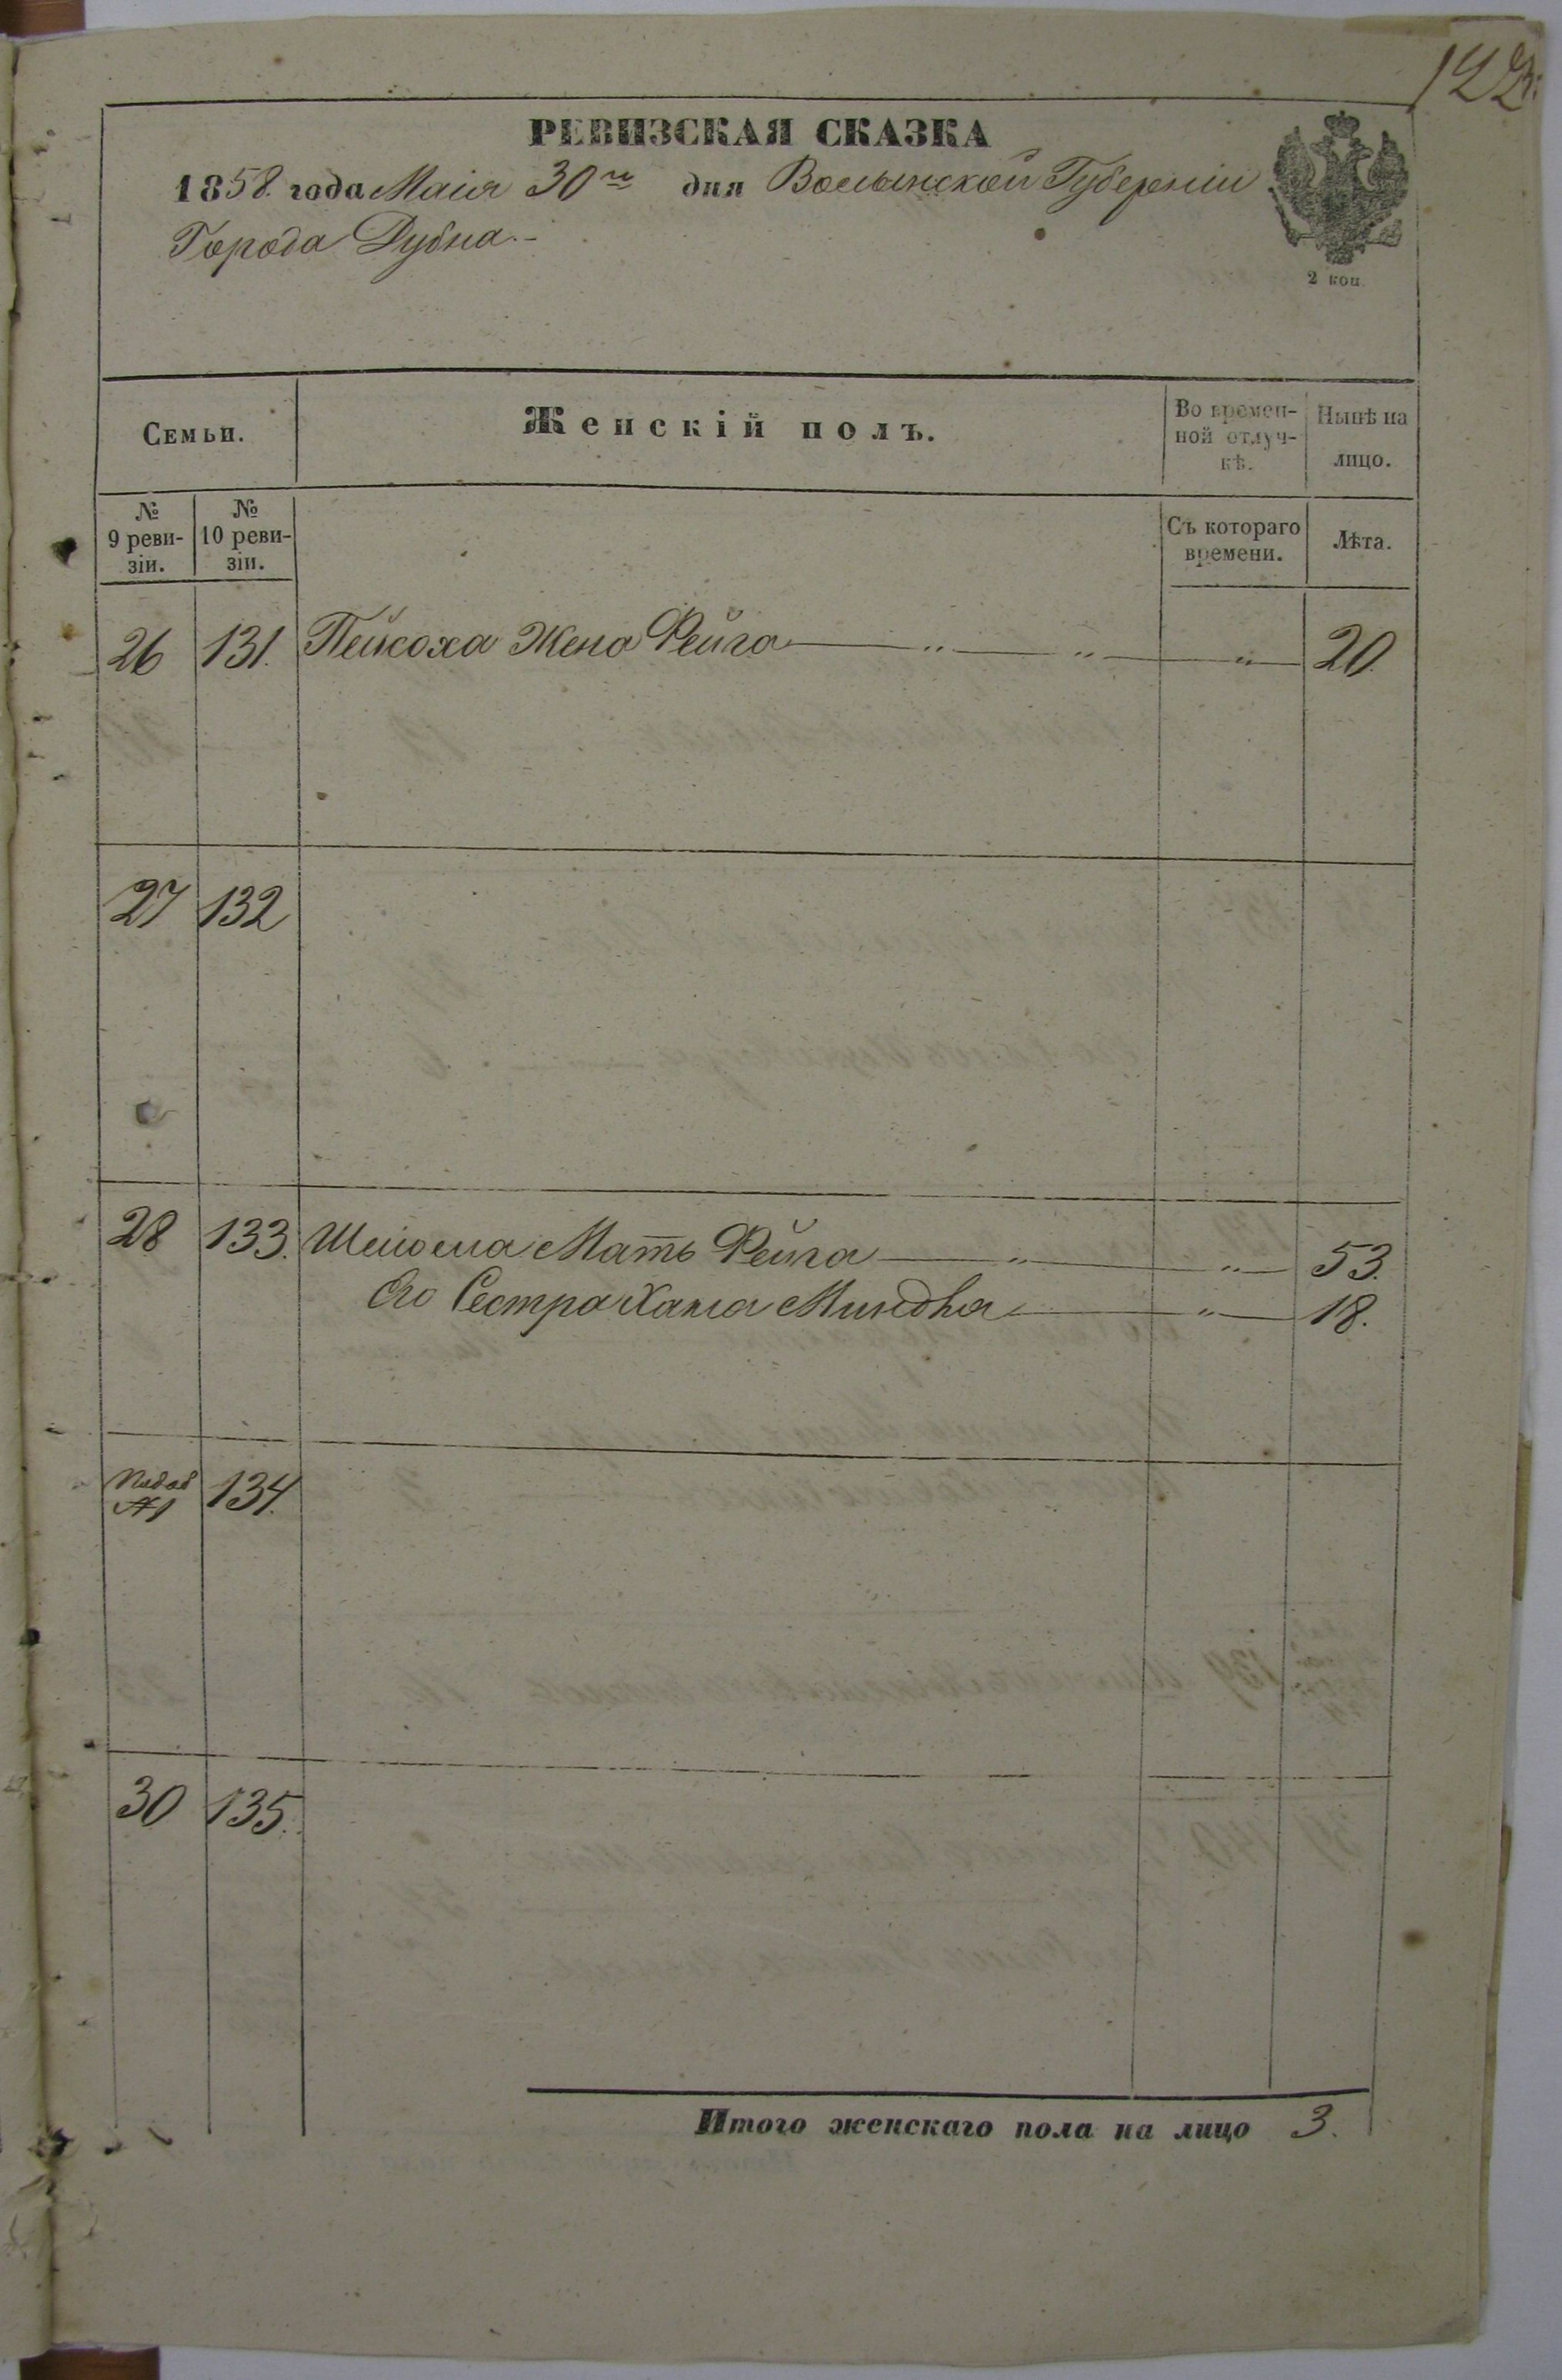 122.
РЕВИЗСКАЯ СКАЗКА
1858. года Маія 30го дня Волынской Губерніи
Города Дубна.-
2 коп.
Семьи.
Женскій полъ.
Во времен-
ной отлуч-
кѣ.
Нынѣ на
лицо.
№
9 реви-
зіи.
№
10 реви-
зіи.
Съ котораго
времени.
Лѣта.
26 131. Пейсоха Жена Фейга — " — " — " — 20.
27 132
28 133. Шліома Мать Фейга — " — " — 53.
Его Сестра Хана Миндля — " — 18.
№1 134.
30 135.
Итого женскаго пола на лицо 3.